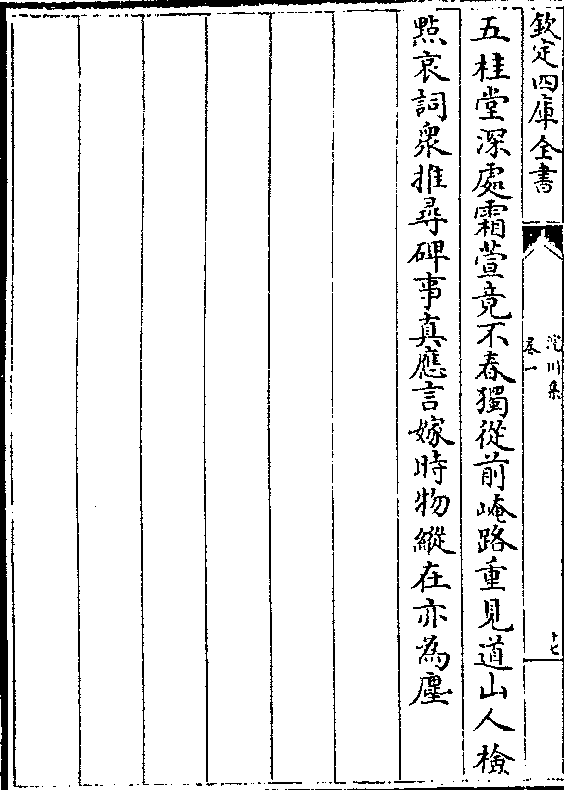 欽定四庫全書
浣川集
卷一
十七
五桂堂深處霜萱竟不春獨從前崦路重見道山人檢
點哀詞衆推尋碑事真應言嫁時物縱在亦為塵